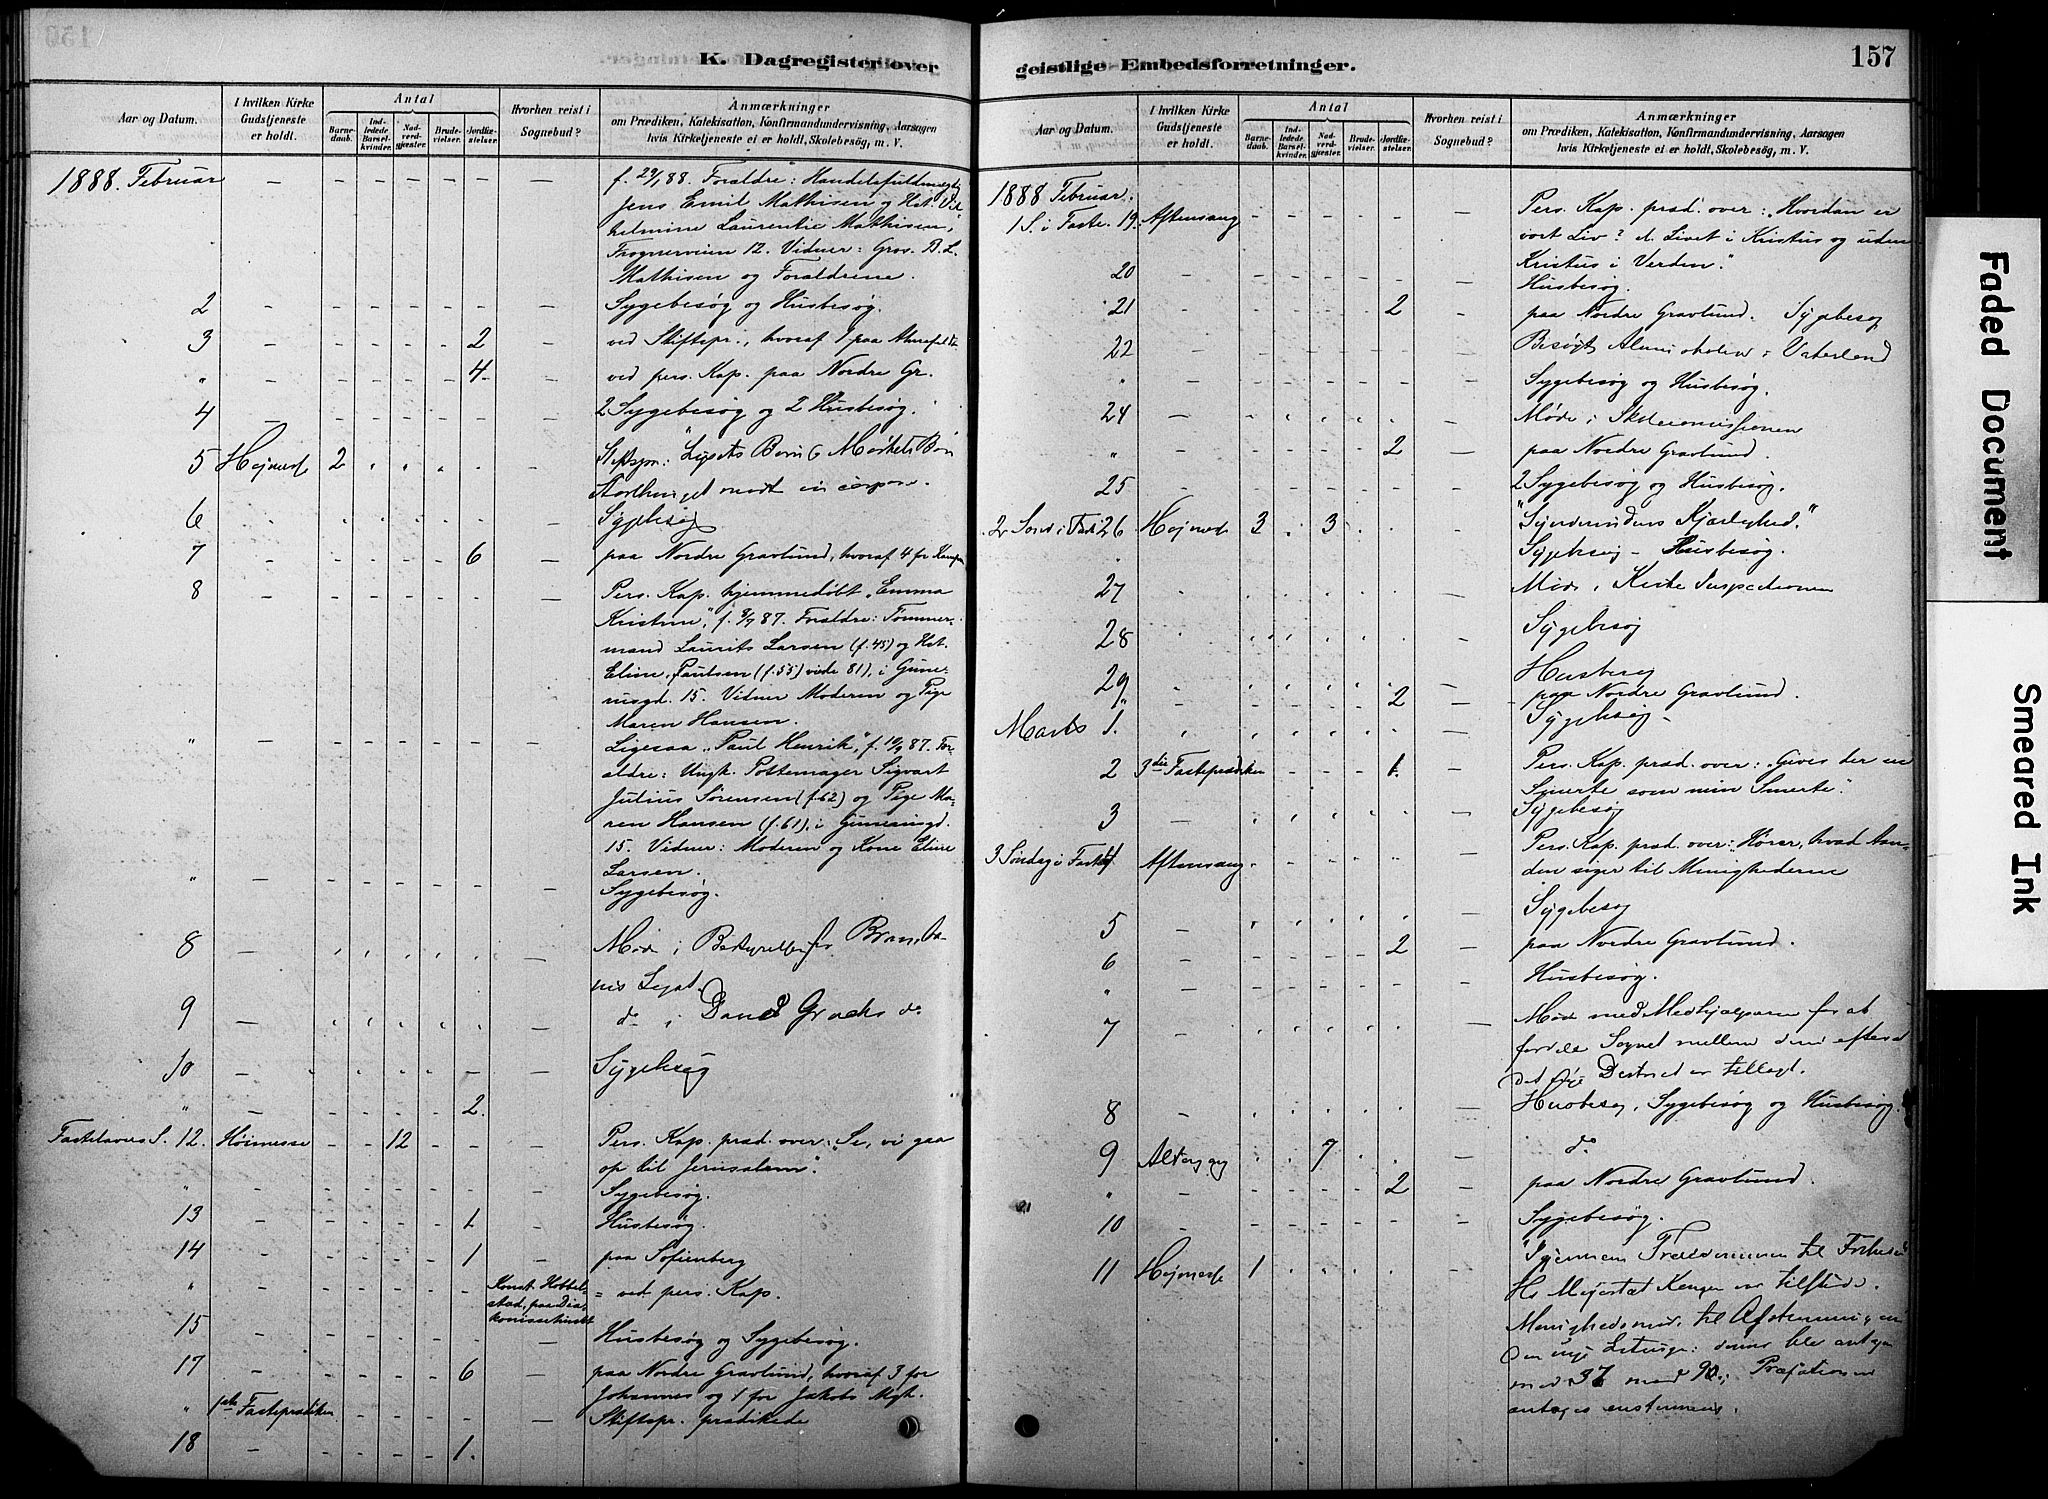 K. Dagregister over
Aar og Datum.
I hvilken Kirke Gudstjeneste er holdt.
Antal
Barnedaab.
Indledede Barselkvinder.
Nadvergjester.
Brudevielser.
Jordfæstelser.
Hvorhen reist i Sognebud?
Anmærkninger
om Prædiken, Katekisation, Konfirmandundervisning, Aarsagen
hvis Kirketjeneste ei er holdt, Skolebesøg, m. V.
1888. Februar
f. 29/1 88. Forældre: Handelsfuldmægtig
Jens Emil Mathisen og Hst. Vil-
helmine Laurentie Mathisen,
Frognerveien 12. Vidner: Gros. B. L.
Mathisen og Forældrene.
2 - - - - - - - Sygebesøg og Husbesøg.
3 - - - - - 2 - ved Stiftspr., hvoraf 1 paa
" - - - - - 4 - ved pers. Kap. paa Nordre Gr.
4 - - - - - - - 2 Sygebesøg og 2 Husbesøg.
5 Højmesse 2 " " " - - Stiftspr.: "Lysets Børn & Mørkets Børn
Storthinget mødt in corpore.
6 Sygebesøg
7 - - - - - 6 - paa Nordre Gravlund, hvoraf 4 for Kampen
8 - - - - - - - Pers. Kap. hjemmedøbt "Emma
Kristine", f. 8/7 87. Forældre: Tømmer-
mand Laurits Larsen (f. 45) og Hst.
Eline Paulsen (f. 55) viede 81), i Gröne-
15. Vidner Moderen og Pige
Maren Hansen.
" - - - - - - - Ligesaa "Paul Henrik", f. 19/9 87. For-
ældre: Ungk. Pottemager Sigvart
Julius Sørensen (f. 62) og Pige Ma-
ren Hansen (f. 61), i
15. Vidner: Moderen og Kone Eline
Larsen.
" - - - - - - - Sygebesøg.
8 Møde i Bestyrelsen for
Legat.
9 do i do
10 Sygebesøg
" - - - - - 2.
Fastelavns S. 12. Høimesse - - 12 - - - Pers. Kap. præd. over: "Se, vi gaa
op til Jerusalem".
" - - - - - - - Sygebesøg.
13 - - - - - 1 - Husbesøg.
14 - - - - - 1 - paa Sofienberg
" - - - - - - Konst. Hobbel-
stad, paa Dia-
konissehuset = ved pers. Kap.
15 - - - - - - - Husbesøg og Sygebesøg.
17 - - - - - 6 - paa Nordre Gravlund, hvoraf 3 for
Johannes og 1 for Jakobs Mgh.
" 1ste Fasteprædiken - - - - - - Stiftspr. prædikede
18 - - - - - 1.
geistlige Embedsforretninger.
157
Aar og Datum.
I hvilken Kirke Gudstjeneste er holdt.
Antal
Barnedaab.
Indledede Barselkvinder.
Nadvergjester.
Brudevielser.
Jordfæstelser.
Hvorhen reist i Sognebud?
Anmærkninger
om Prædiken, Katekisation, Konfirmandundervisning, Aarsagen
hvis Kirketjeneste ei er holdt, Skolebesøg, m. V.
1888 Februar.
1 S. i Faste. 19. Aftensang - - - - - - Pers. Kap. præd. over: "Hvordan er
vort Liv? d. Livet i Kristus og uden
Kristus i Verden."
20 - - - - - - - Husbesøg.
21 - - - - - 2 - paa Nordre Gravlund. Sygebesøg
22 - - - - - - - Besøgt Almueskolen i Vaterland
" - - - - - - - Sygebesøg og Husbesøg.
24 Møde i
" 2 - paa Nordre Gravlund.
25 - - - - - - - 2 Sygebesøg og Husbesøg.
2 Sønd. i Fast. 26 Højmesse 3 3 "Synderindens Kjærlighed."
Sygebesøg - Husbesøg.
27 Møde i Kirke Inspectionen
28 Sygebesøg
29 Husbesøg
" 2 - paa Nordre Gravlund.
Marts 1. Sygebesøg -
2 3die Fasteprædiken - - - - 1. - Pers. Kap. præd. over: "Gives der en
Smerte som min Smerte".
3 Sygebesøg
3 Søndag i Faste 4 Aftensang. - - - - - - Pers. Kap. præd. over: Hører, hvad Aan-
den siger til Menighederne
5 Sygebesøg
6 - - - - - 2 - paa Nordre Gravlund.
" - - - - - - - Husbesøg.
7 Møde med Medhjælperne for at
fordele Sognet mellem dem efterat
det nye District er tillagt.
8 Husbesøg, Sygebesøg og Husbesøg.
9 Altergang 7 do
" 2 - paa Nordre Gravlund.
21
10 - - - - - - - Sygebesøg.
11 Højmesse 1 "Igjennem til
Hs Majestæt Kongen var tilstede.
Menighedsmøde til Afstemning om
den nye Liturgi: denne ble antagen
med 37 mod 90.; Præfationen
antages enstemmig.
Faded Document
Smeared Ink